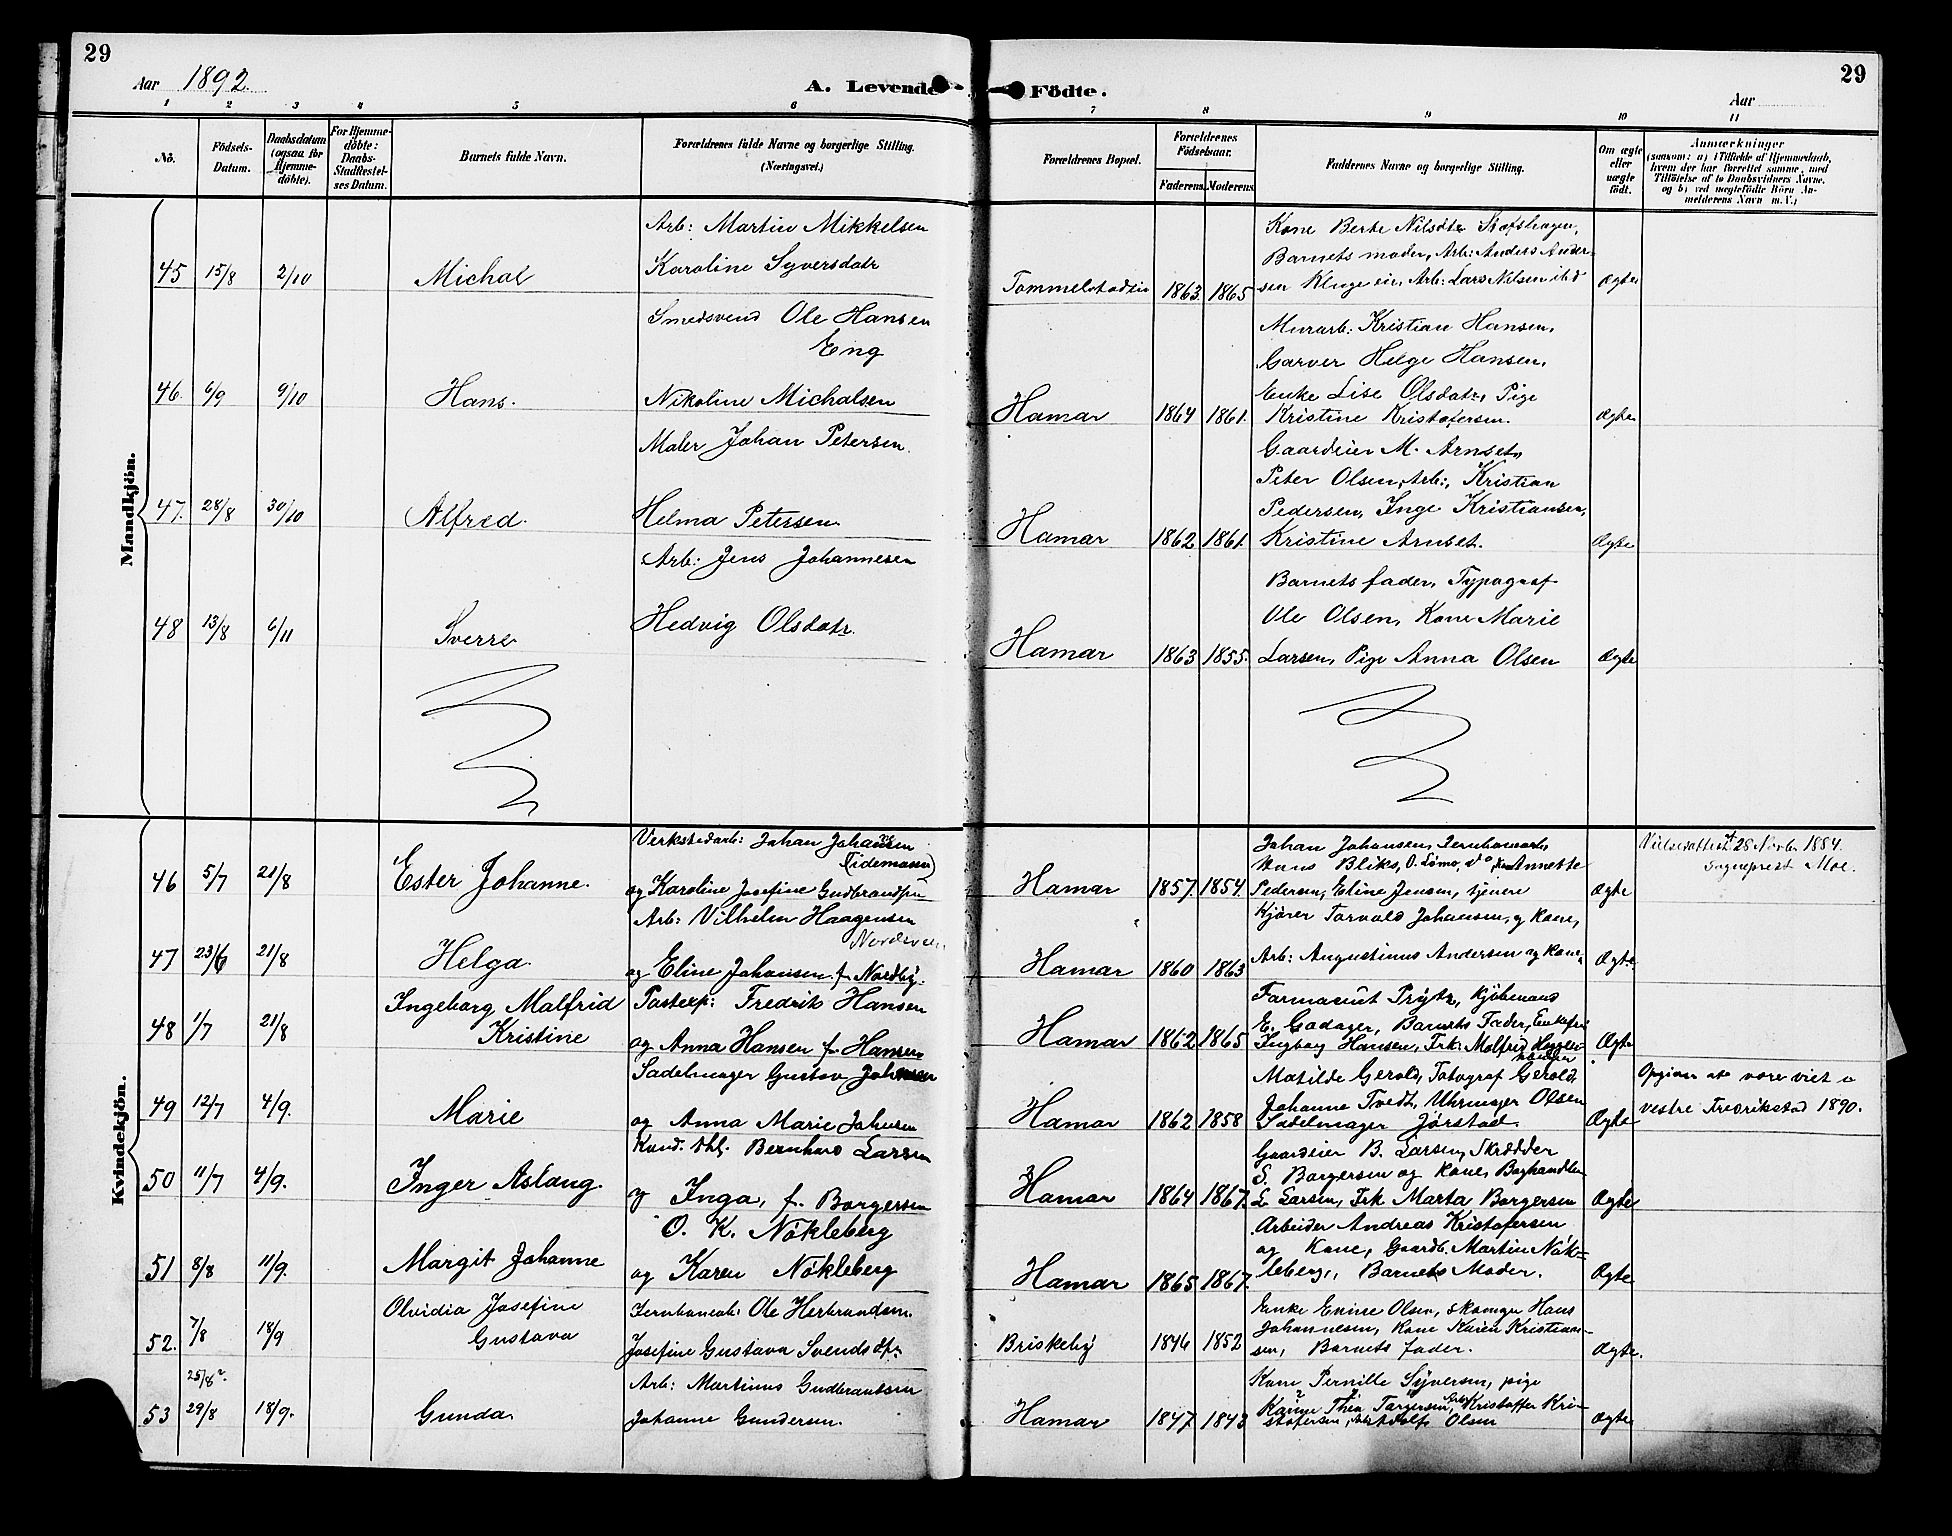 29
Aar 1892.
A. Levende Födte.
29
Aar
1 2 3 4 5 6 7 8 9 10 11
No.
Födsels-Datum.
Daabsdatum (ogsaa for Hjemme-döbte).
For Hjemme-döbte: Daabs-Stadfæstel-ses Datum.
Barnets fulde Navn.
Forældrenes fulde Navne og borgerlige Stilling. (Næringsvei.)
Forældrenes Bopæl.
Forældrenes Födselsaar.
Faderens. Moderens.
Faddernes Navne og borgerlige Stilling.
Om ægte eller uægte födt.
Anmærkninger
(saasom: a) i Tilfælde af Hjemmedaab,
hvem der har forrettet samme, med
Tilföielse af to Daabsvidners Navne,
og b) ved uægtefödte Börn An-
melderens Navn m. V.)
Mandkjön.
45 15/8 2/10 Michal
Arb: Martin Mikkelsen
Karoline Syversdatr
Tommelstadein 1863. 1865
Kone Berte Nilsdtr Stafshagen,
Barnets moder, Arb: Anders Ander-
sen Kluge eie, Arb: Lars Nilsen ibd
Ægte
46. 6/9 9/10 Hans.
Smedsvend Ole Hansen
Eng
Nikoline Michalsen
Hamar 1864 1861.
Murarb: Kristian Hansen,
Garver Helge Hansen,
Enke Lise Olsdatr, Pige
Kristine Kristofersen.
Ægte
47. 28/8 30/10 Alfred.
Maler Johan Petersen.
Helma Petersen
Hamar 1862 1861
Gaardeier M. Arnset,
Peter Olsen, Arb:, Kristian
Pedersen, Inge Kristiansen,
Kristine Arnset.
Ægte
48 13/8 6/11 Sverre
Arb: Jens Johannesen
Hedvig Olsdatr.
Hamar 1863 1855.
Barnets fader, Typograf
Ole Olsen, Kone Marie
Larsen, Pige Anna Olsen
Ægte
Kvindekjön.
46 5/7 21/8 Ester Johanne.
Verkstedarb: Johan Johansen
(Tidemann)
og Karoline Josefine Gudbrandsen
Hamar 1857. 1854.
Johan Johansen, Jernbanearb,
Hans Bliks, O. Lömo, do, Annette
Pedersen, Eline Jensen, tjenere
Ægte
Vielsesattest 28 Novbr 1884.
Sogneprest Moe.
47 23/6 21/8 Helga.
Arb: Vilhelm Haagensen
og Eline Johansen f. Nordby.
Hamar 1860 1863
Kjörer Torvald Johansen, og Kone,
Arb: Augustinus Andersen og Kone,
Ægte
48 1/7 21/8 Ingeborg Malfrid
Kristine
Postexp: Fredrik Hansen
og Anna Hansen f. Hansen
Hamar 1862 1865
Farmaceut Prytz, Kjöbmand
E. Gadager, Barnets Fader, Enkefru
Ingborg Hansen, Frk: Malfrid
Ægte
49 12/7 4/9. Marie
Sadelmager Gustav Johnsen
og Anna Marie Johnsen
Hamar 1862 1858
Matilde Gerold, Fotograf Gerold,
Johanne Tvedt, Uhrmager Olsen
Sadelmager Jörstad.
Ægte
Opgives at vore viet i
vestre Fredrikstad 1890.
50 11/7 4/9. Inger Aslaug.
Kand. Bernhard Larsen
og Inga, f. Borgersen
Hamar 1864 1867.
Gaardeier B. Larsen, Skrædder
S. Borgersen og Kone, Boghandler
L Larsen, Frk Marta Borgersen
Ægte
51 8/8 11/9. Margit Johanne
O. K. Nökleberg
og Karen Nökleberg
Hamar 1865 1867.
Arbeider Andreas Kristofersen
og Kone, Gaardb. Martin Nök-
leberg, Barnets Moder.
Ægte
52. 7/8 18/9 Olvidia Josefine
Gustava
Jernbanearb: Ole Herbrandsen.
Josefine Gustava Svendsdtr.
Briskeby 1846 1852
Enke Emme Olsen, skomager Hans
Johannesen, Kone Karen Kristian-
sen, Barnets fader.
Ægte.
25/8?
53 29/8 18/9. Gunda
Arb: Martinus Gudbrandsen
Johanne Gundersen.
Hamar 1847 1843
Kone Pernille Syversen, pige
Thea Torgersen, Kristoffer Kri-
stofersen, Adolf Olsen
Ægte